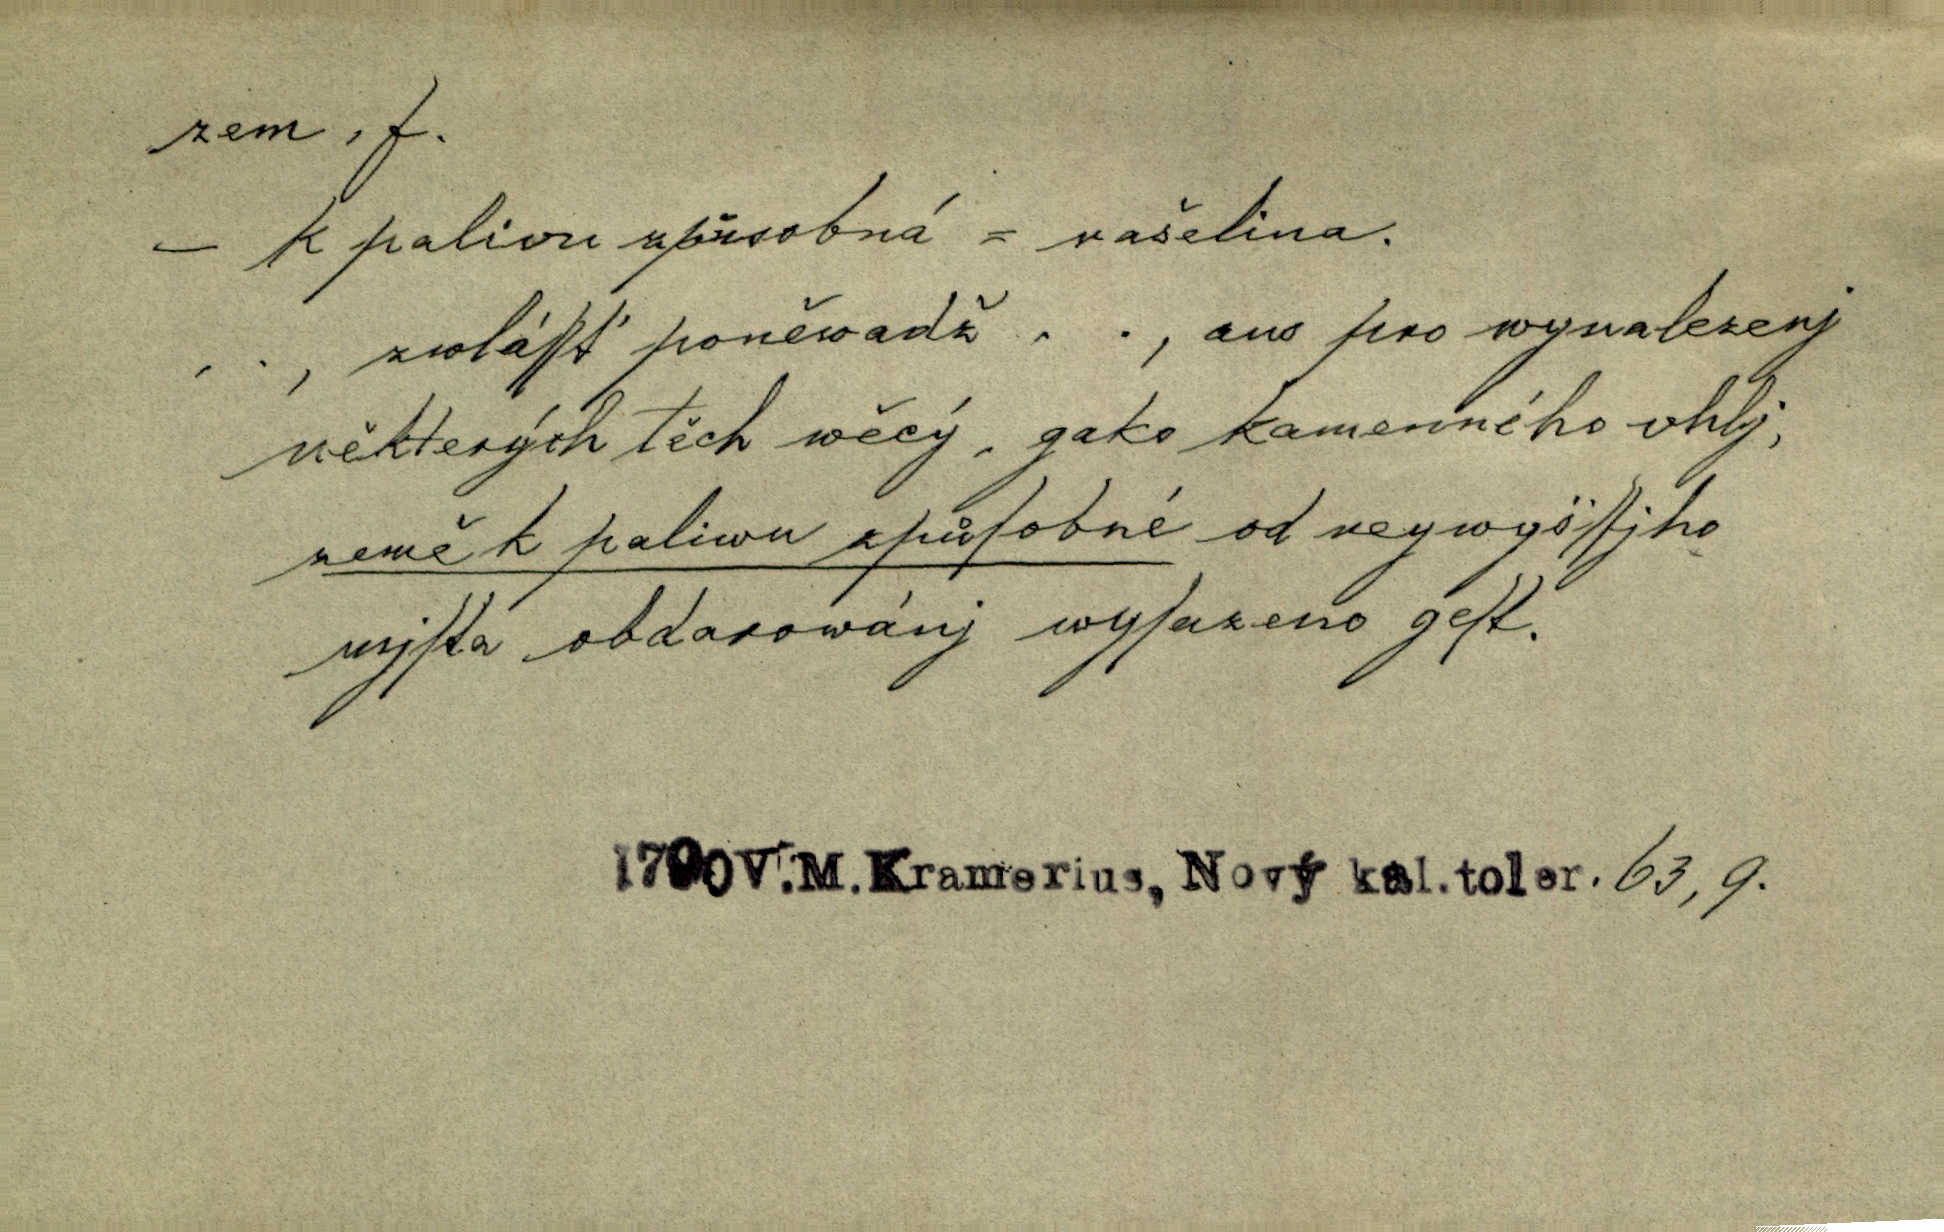 zem, f.
— k palivu způsobná = rašelina.
. ., zwláſſť poněwadž . ., ano pro wynalezenj
některých těch wěcý, gako kamenného vhlj,
země k paliwu způſobné od neywyšſſjho
mjſta obdarowánj wyſazeno geſt.
1790 V.M.Kramerius, Nový kal.toler. 63, 9.